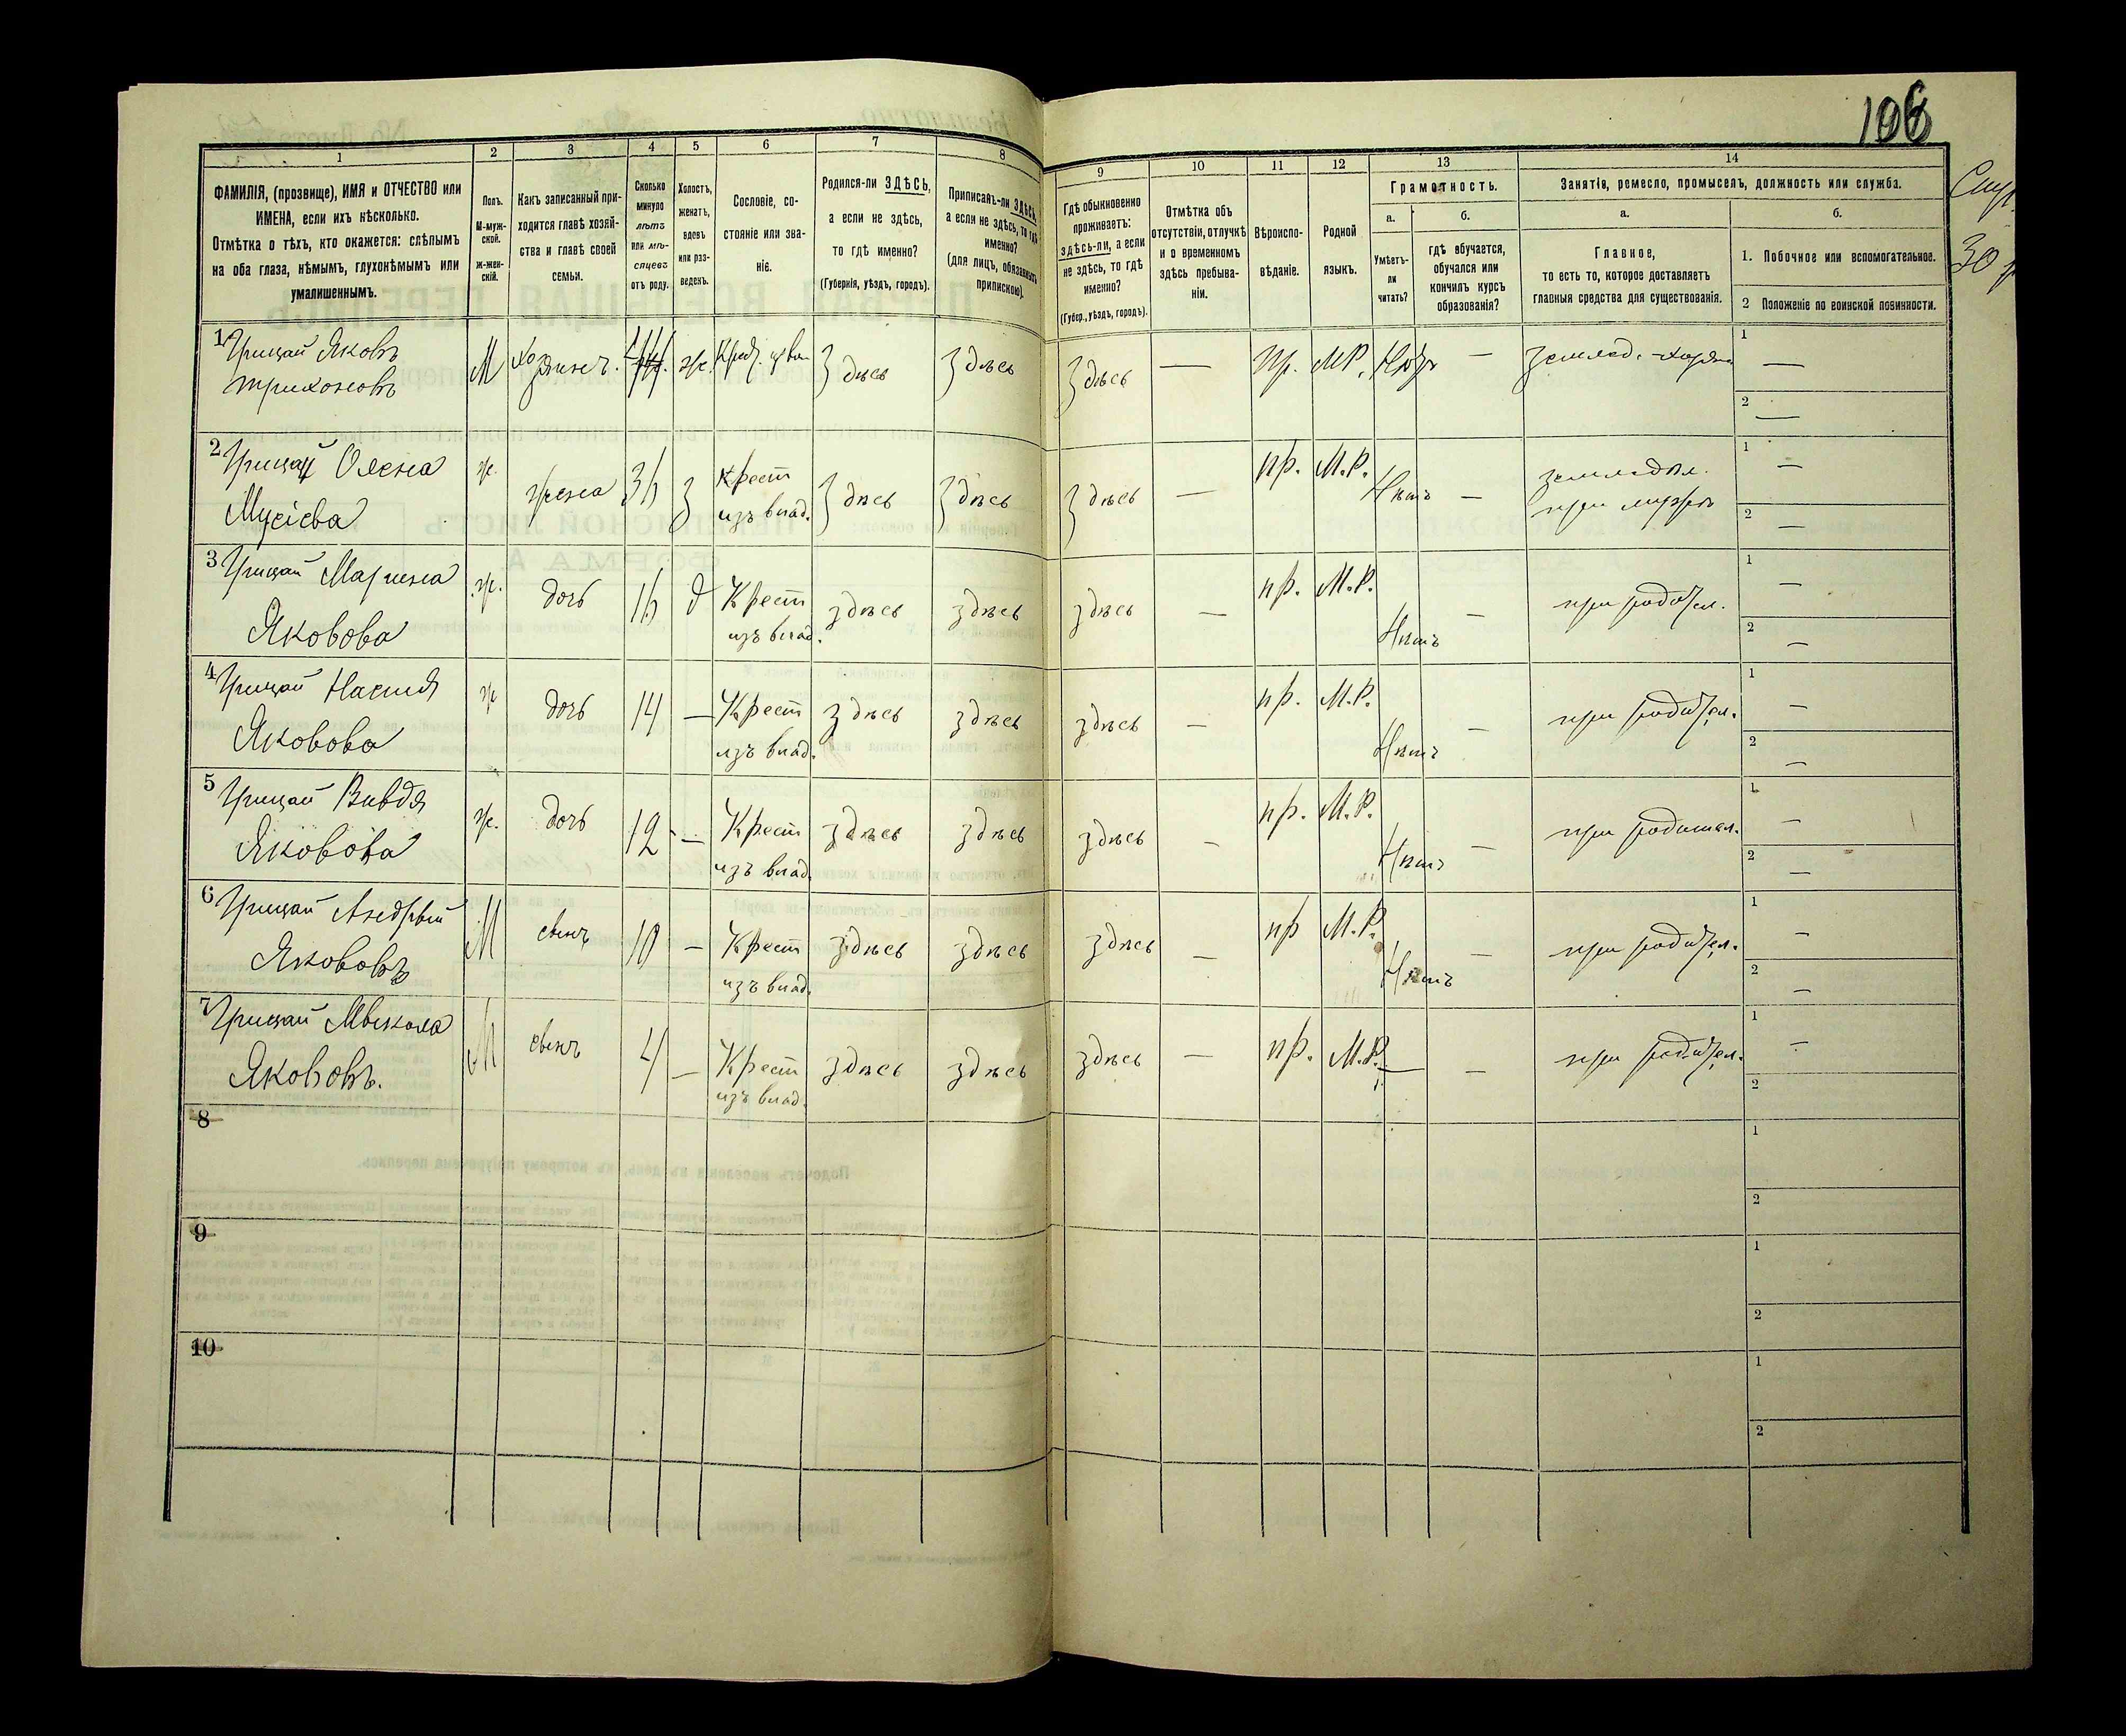 106
1 2 3 4 5 6 7 8 9 10 11 12 13 14
ФАМИЛІЯ, (прозвище), ИМЯ и ОТЧЕСТВО или
ИМЕНА, если ихъ нѣсколько.
Отмѣтка о тѣхъ, кто окажется: слѣпымъ
на оба глаза, нѣмымъ, глухонѣмымъ или
умалишеннымъ.
Полъ.
М-муж-
ской.
Ж-жен-
скій.
Какъ записанный при-
ходится главѣ хозяй-
ства и главѣ своей
семьи.
Сколько
минуло
лѣтъ
или мѣ-
сяцевъ
отъ роду.
Холостъ,
женатъ,
вдовъ
или раз-
веденъ.
Сословіе, со-
стояніе или зва-
ніе.
Родился-ли ЗДѢСЬ,
а если не здѣсь,
то гдѣ именно?
(Губернія, уѣздъ, городъ).
Приписанъ-ли ЗДѢСЬ,
а если не здѣсь, то гдѣ
именно?
(для лицъ, обязанныхъ
припискою).
Гдѣ обыкновенно
проживаетъ:
здѣсь-ли, а если
не здѣсь, то гдѣ
именно?
(Губер., уѣздъ, городъ).
Отмѣтка объ
отсутствіи, отлучкѣ
и о временномъ
здѣсь пребыва-
ніи.
Вѣроиспо-
вѣданіе.
Родной
языкъ.
Грамотность.
а. б.
Умѣетъ-
ли
читать?
гдѣ обучается,
обучался или
кончилъ курсъ
образованія?
Занятіе, ремесло, промыселъ, должность или служба.
а. б.
Главное,
то есть то, которое доставляетъ
главныя средства для существованія.
1. Побочное или вспомогательное.
2 Положеніе по воинской повинности.
30
1 Грицай Яковъ
М Хозяинъ. ж. здѣсь здѣсь здѣсь — Пр. М.Р. Нѣтъ — 1 —
2 —
2 Грицай Олена
Мусіева
ж. жена з Крест
изъ влад. здѣсь здѣсь здѣсь — пр. М.Р. Нѣтъ — земледѣл.
при мужѣ
1 —
2 —
3 Грицай Марина
Яковова
ж. дочь д Крест
изъ влад. здѣсь здѣсь здѣсь — пр. М.Р. Нѣтъ — при родител.
1 —
2 —
4 Грицай Настя
Яковова
ж дочь 14 — Крест
изъ влад. здѣсь здѣсь здѣсь — пр. М.Р. Нѣтъ — при родител.
1 —
2 —
5 Грицай Вивдя
Яковова
ж. дочь 12 — Крест
изъ влад. здѣсь здѣсь здѣсь — пр. М.Р. Нѣтъ — при родител.
1 —
2 —
6 Грицай Андрѣй
Якововъ
М сынъ 10 — Крест
изъ влад. здѣсь здѣсь здѣсь — пр М.Р. Нѣтъ — при родител.
1 —
2 —
7 Грицай Мыкола
Якововъ.
М сынъ 4 — Крест
изъ влад. здѣсь здѣсь здѣсь — пр. М.Р. — — при родител.
1 —
2
8 1
2
9 1
2
10 1
2